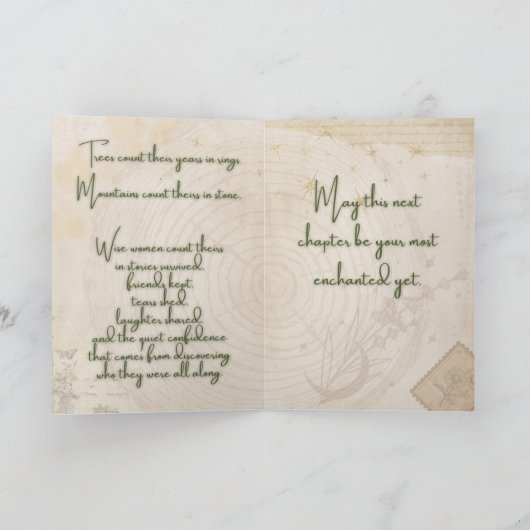 Trees count their years in rings
Mountains count theirs in stone.
Wise women count theirs
in stories survived,
friends kept,
tears shed,
laughter shared,
and the quiet confidence
that comes from discovering
who they were all along.
May this next
chapter be your most
enchanted yet.